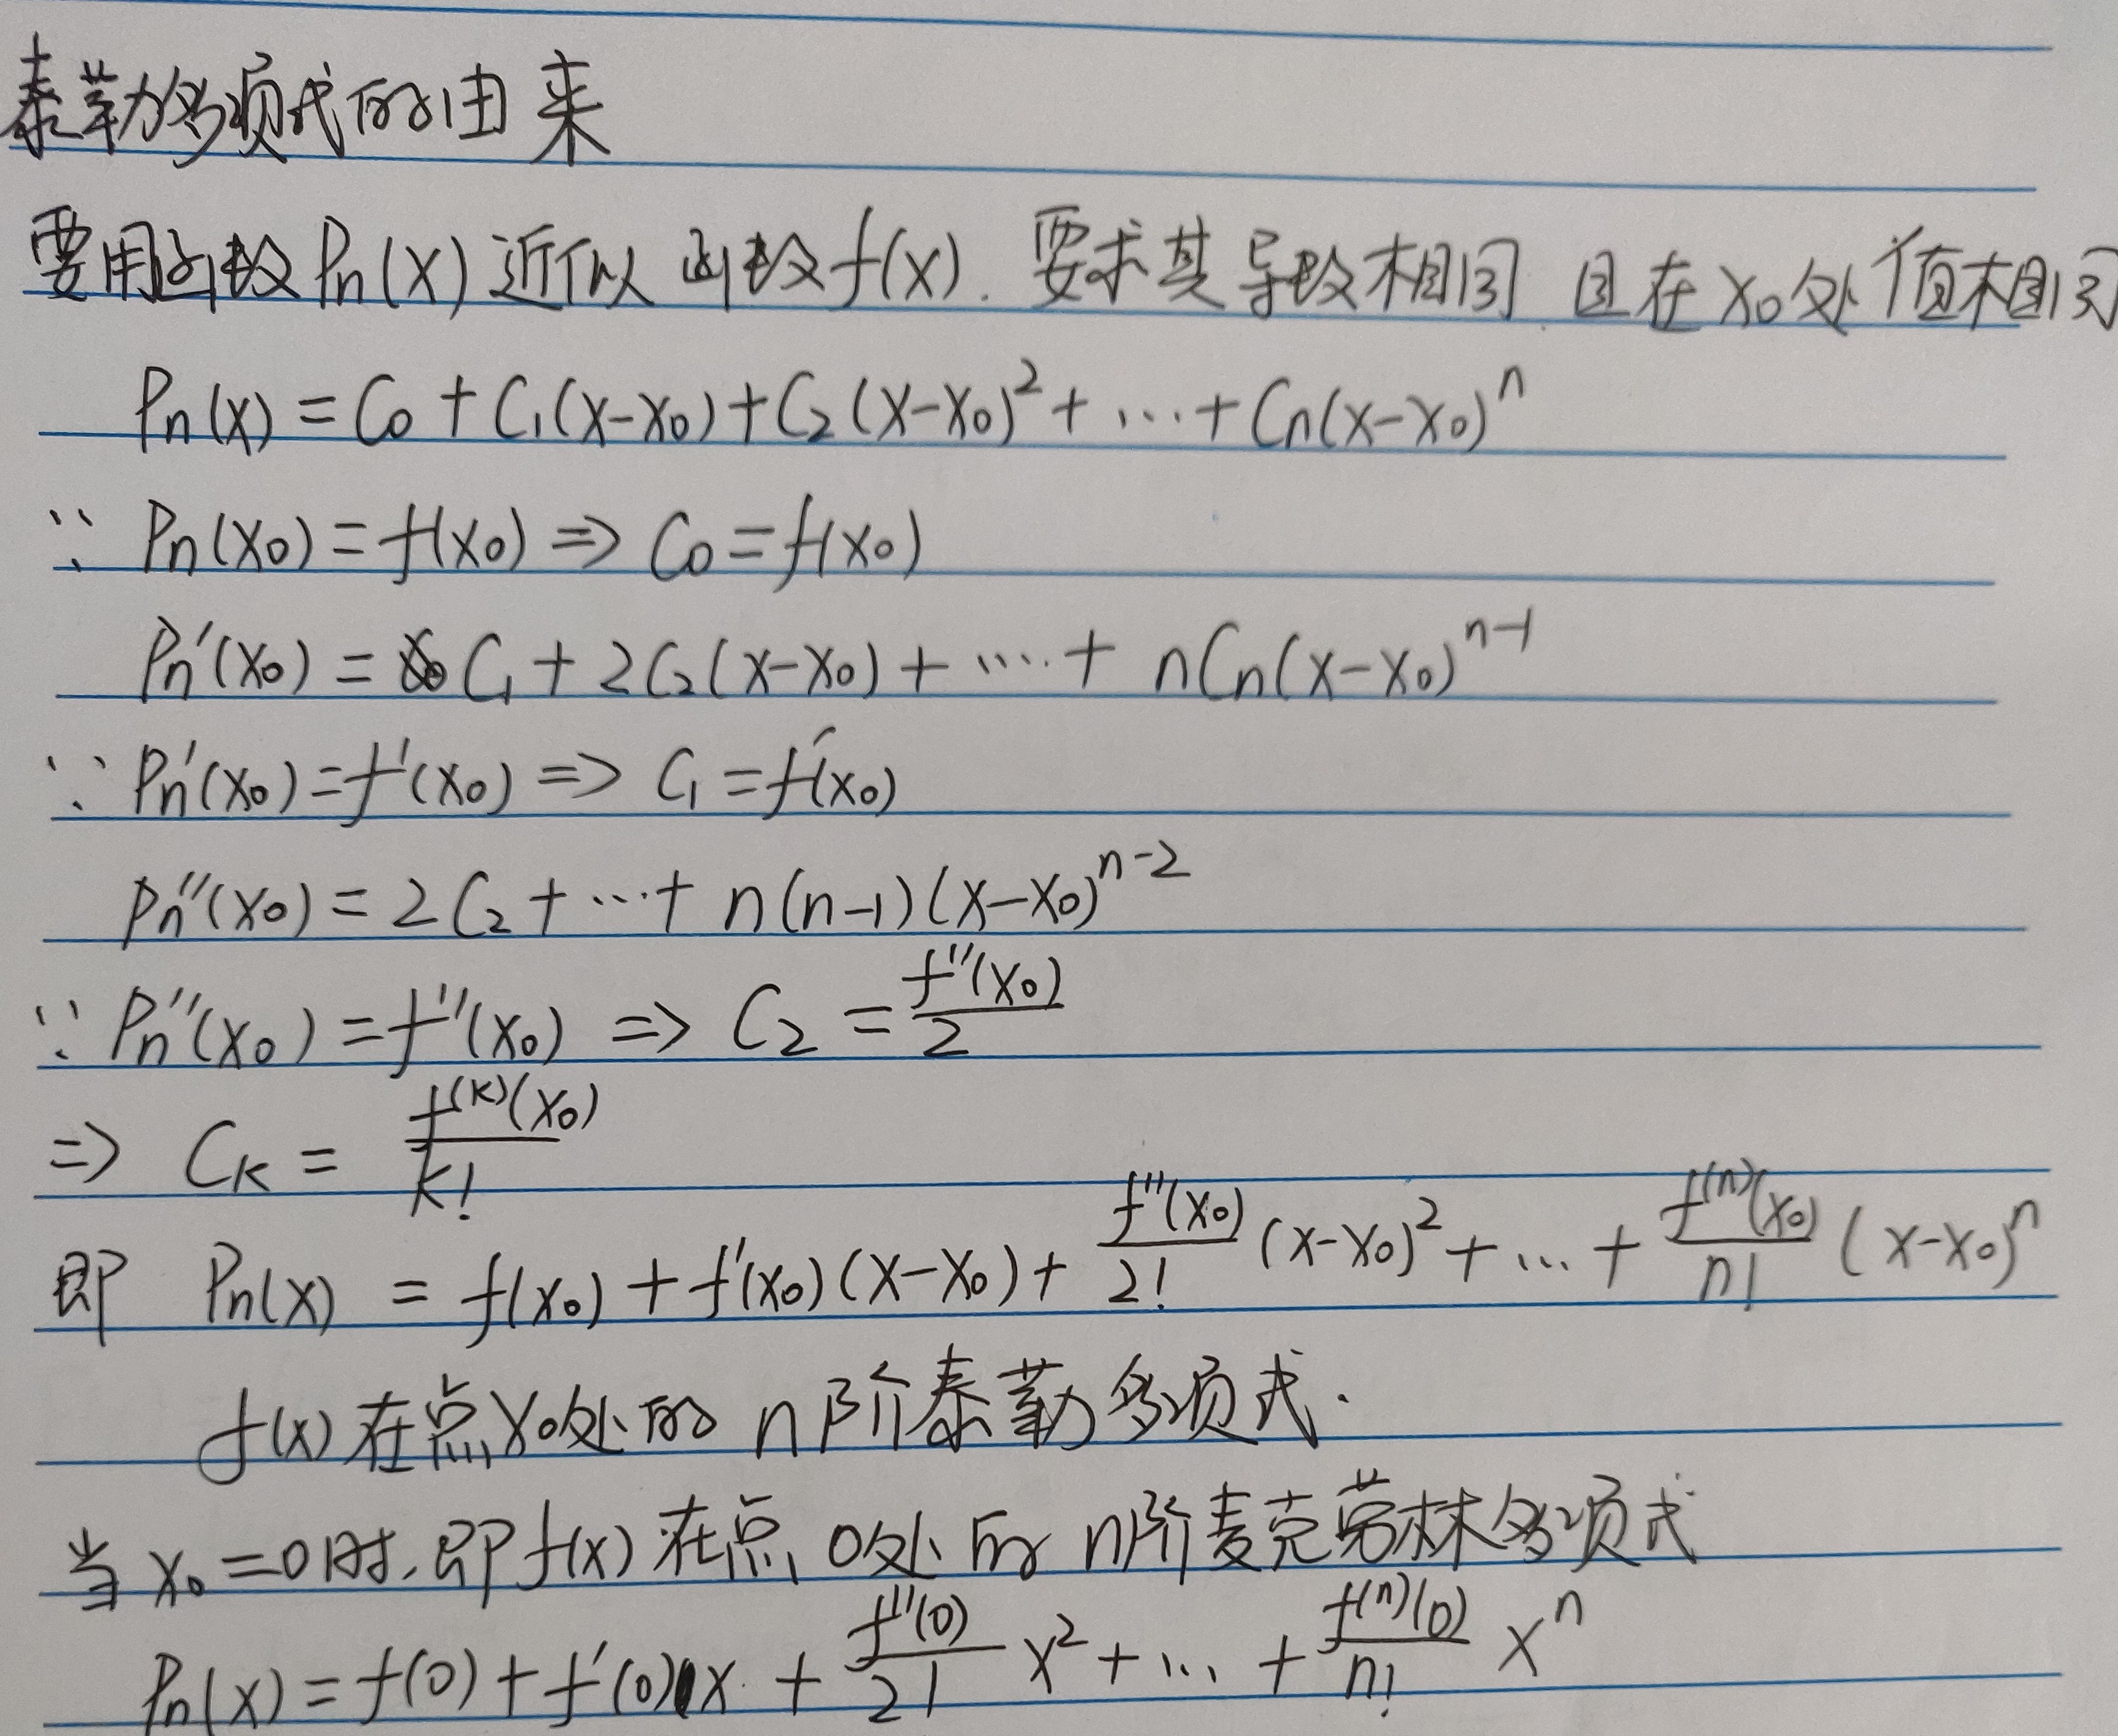 泰勒多项式的由来
要用函数Pn(x)近似函数f(x).要求其导数相同 且在x₀处值相同
Pn(x) = C₀ + C₁(x-x₀) + C₂(x-x₀)² + ... + Cn(x-x₀)ⁿ
∵ Pn(x₀) = f(x₀) ⇒ C₀ = f(x₀)
Pn'(x₀) = C₁ + 2C₂(x-x₀) + ... + nCn(x-x₀)ⁿ⁻¹
∵ Pn'(x₀) = f'(x₀) ⇒ C₁ = f'(x₀)
Pn''(x₀) = 2C₂ + ... + n(n-1)(x-x₀)ⁿ⁻²
∵ Pn''(x₀) = f''(x₀) ⇒ C₂ = f''(x₀)/2
⇒ Cₖ = f⁽ᵏ⁾(x₀)/k!
即 Pn(x) = f(x₀) + f'(x₀)(x-x₀) + f''(x₀)/2! (x-x₀)² + ... + f⁽ⁿ⁾(x₀)/n! (x-x₀)ⁿ
f(x)在点x₀处的n阶泰勒多项式.
当x₀=0时,即f(x)在点0处的n阶麦克劳林多项式
Pn(x) = f(0) + f'(0)x + f''(0)/2! x² + ... + f⁽ⁿ⁾(0)/n! xⁿ